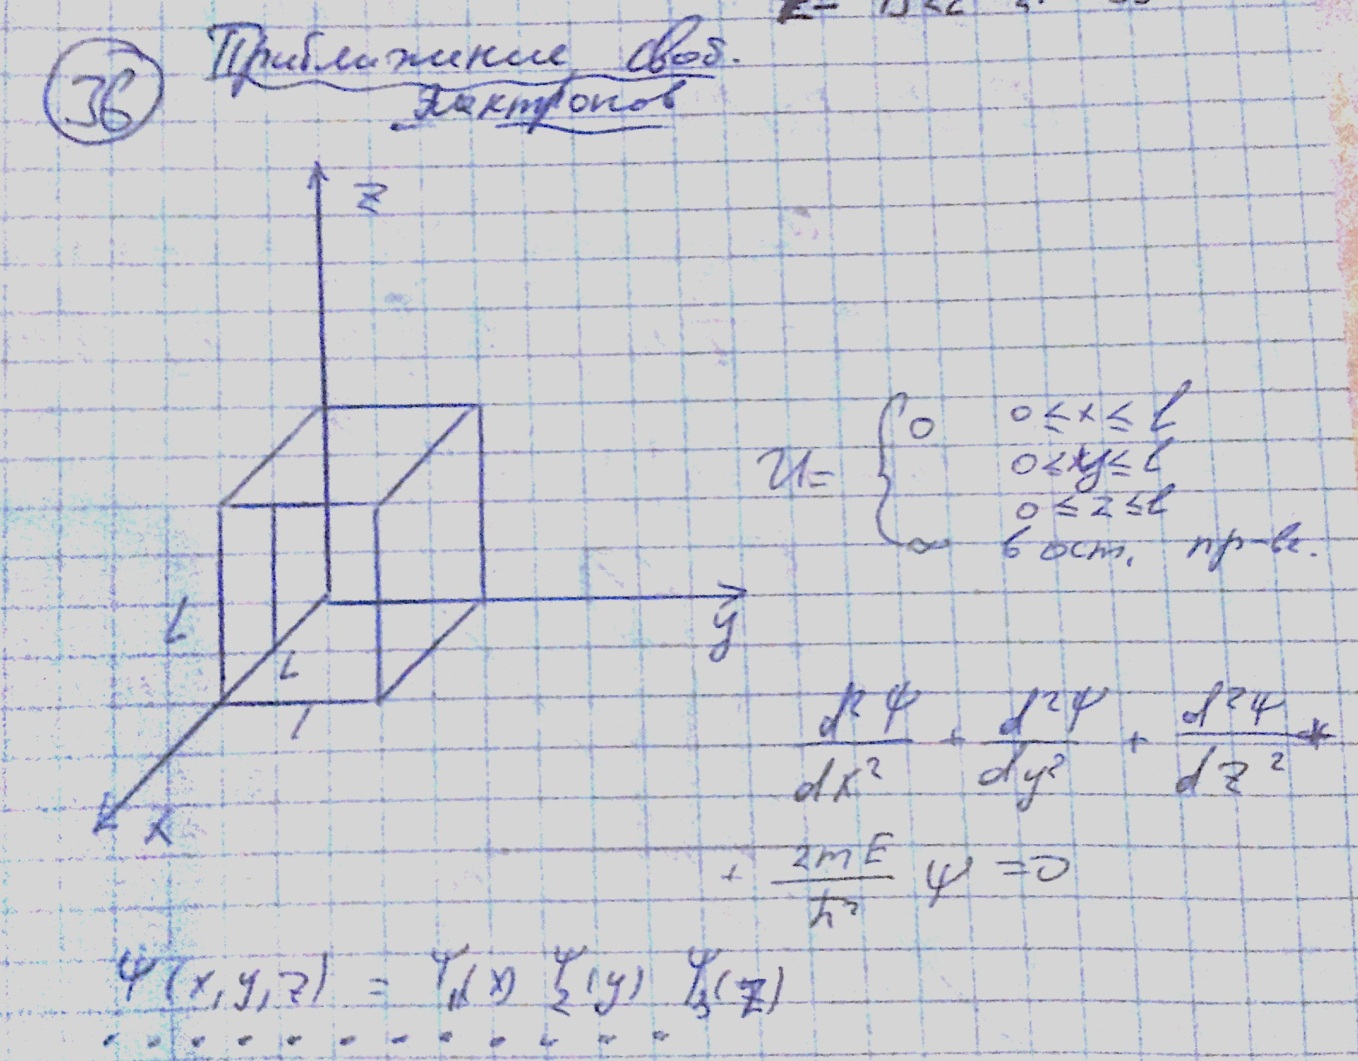 36
Приближение своб.
электронов
z
U = { 0 0 ≤ x ≤ l
0 ≤ y ≤ l
0 ≤ z ≤ l
∞ в ост. пр-ве.
L
L
L
y
x
d²ψ/dx² + d²ψ/dy² + d²ψ/dz² +
+ 2mE/ħ² ψ = 0
ψ(x,y,z) = ψ₁(x) ψ₂(y) ψ₃(z)